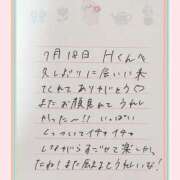 7月18日 Hくんへ
久しぶりに会いに来
てくれてありがとう♡
またお顔見れてうれし
かったー!! いっぱい
しっついてイチャイチャ
しながらすごせて楽しかっ
たね! また会えるとうれしいな!